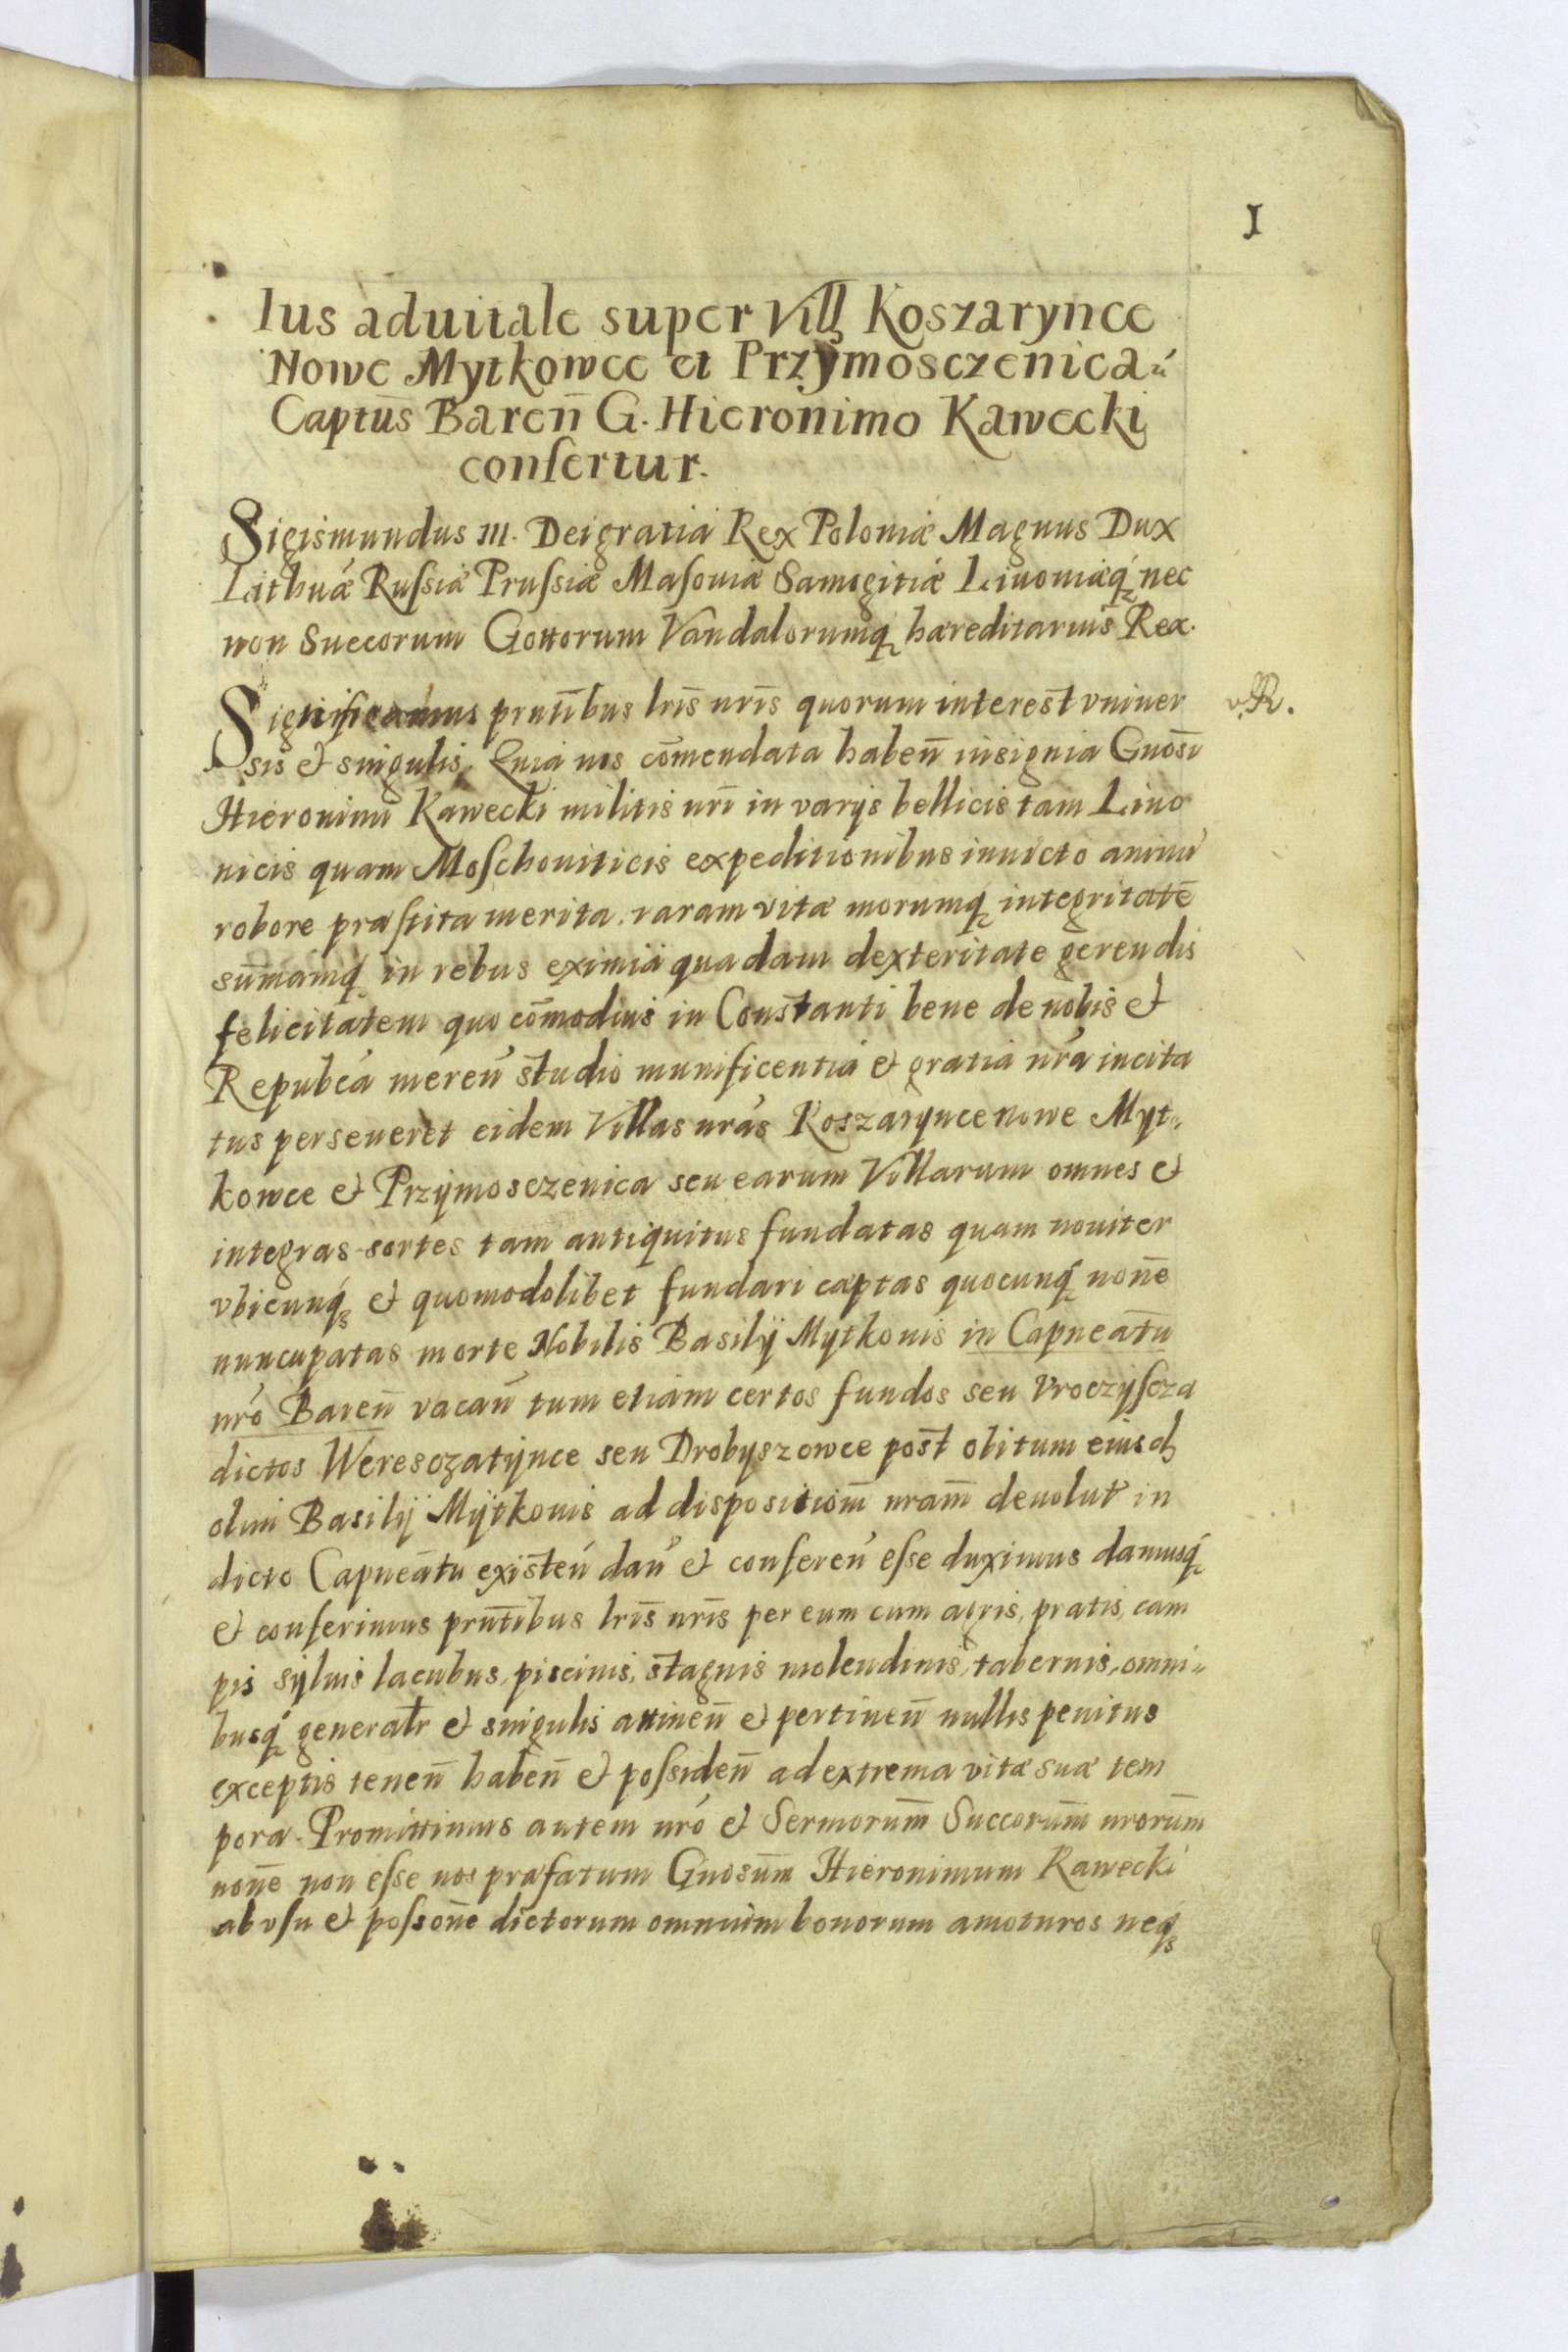 1
Ius aduitale super Vill Koszarynce
Nowe Mytkowce et Przymosczenica
Captus̄ Baren̄ G. Hieronimo Kawecki
confertur.
Sigismundus III. Dei gratia Rex Poloniæ Magnus Dux
Lithuá Russiæ Prussiæ Masouiæ Samogitiæ Liuoniæq́ nec
non Suecorum Gottorum Vandalorumq hæreditarius Rex.
Significamus prn̄tibus lrīs nrīs quorum interest vniuer
sis et singulis. Quia nos com̄endata haben̄ insignia Gnosī
Hieronimi Kawecki militis nrī in varijs bellicis tam Liuo
nicis quam Moschouiticis expeditionibus inuicto animi
robore præstita merita. raram vitæ morumq integritatē
sum̄amq́ in rebus eximia quadam dexteritate gerendis
felicitatem quo com̄odius in Constanti bene de nobis et
Repubcá meren̄ studio munificentia et gratia nrá incita
tus perseueret eidem Villas nrás Koszarynce nowe Myt„
kowce et Przymosczenica seu earum Villarum omnes et
integras sortes tam antiquitus fundatas quam nouiter
vbicunq́ et quomodolibet fundari cæptas quocunq́ non̄e
nuncupatas morte Nobilis Basilij Mytkouis in Capneātu
nró Baren̄ vacan̄ tum etiam certos fundos seu Vroczyscza
dictos Weresczatynce seu Drobyszowce post obitum eiusd
olim Basilij Mytkouis ad disposition̄ nram̄ deuolut in
dicto Capneātu existen̄ dan̄ et conferen̄ esse duximus damusq́
et conferimus prn̄tibus lrīs nrīs per eum cum agris, pratis, cam
pis syluis lacubus, piscinis, stagnis molendinis, tabernis, omni„
busq́ generalr et singulis attinen̄ et pertinen̄ nullis penitus
exceptis tenen̄ haben̄ et possiden̄ ad extrema vitæ suæ tem
pora. Promittimus autem nró et Sermorum̄ Succorum̄ nrorum̄
non̄e non esse nos præfatum Gnosum̄ Hieronimum Kawecki
ab vsu et posson̄e dictorum omnium bonorum amoturos neq
R.